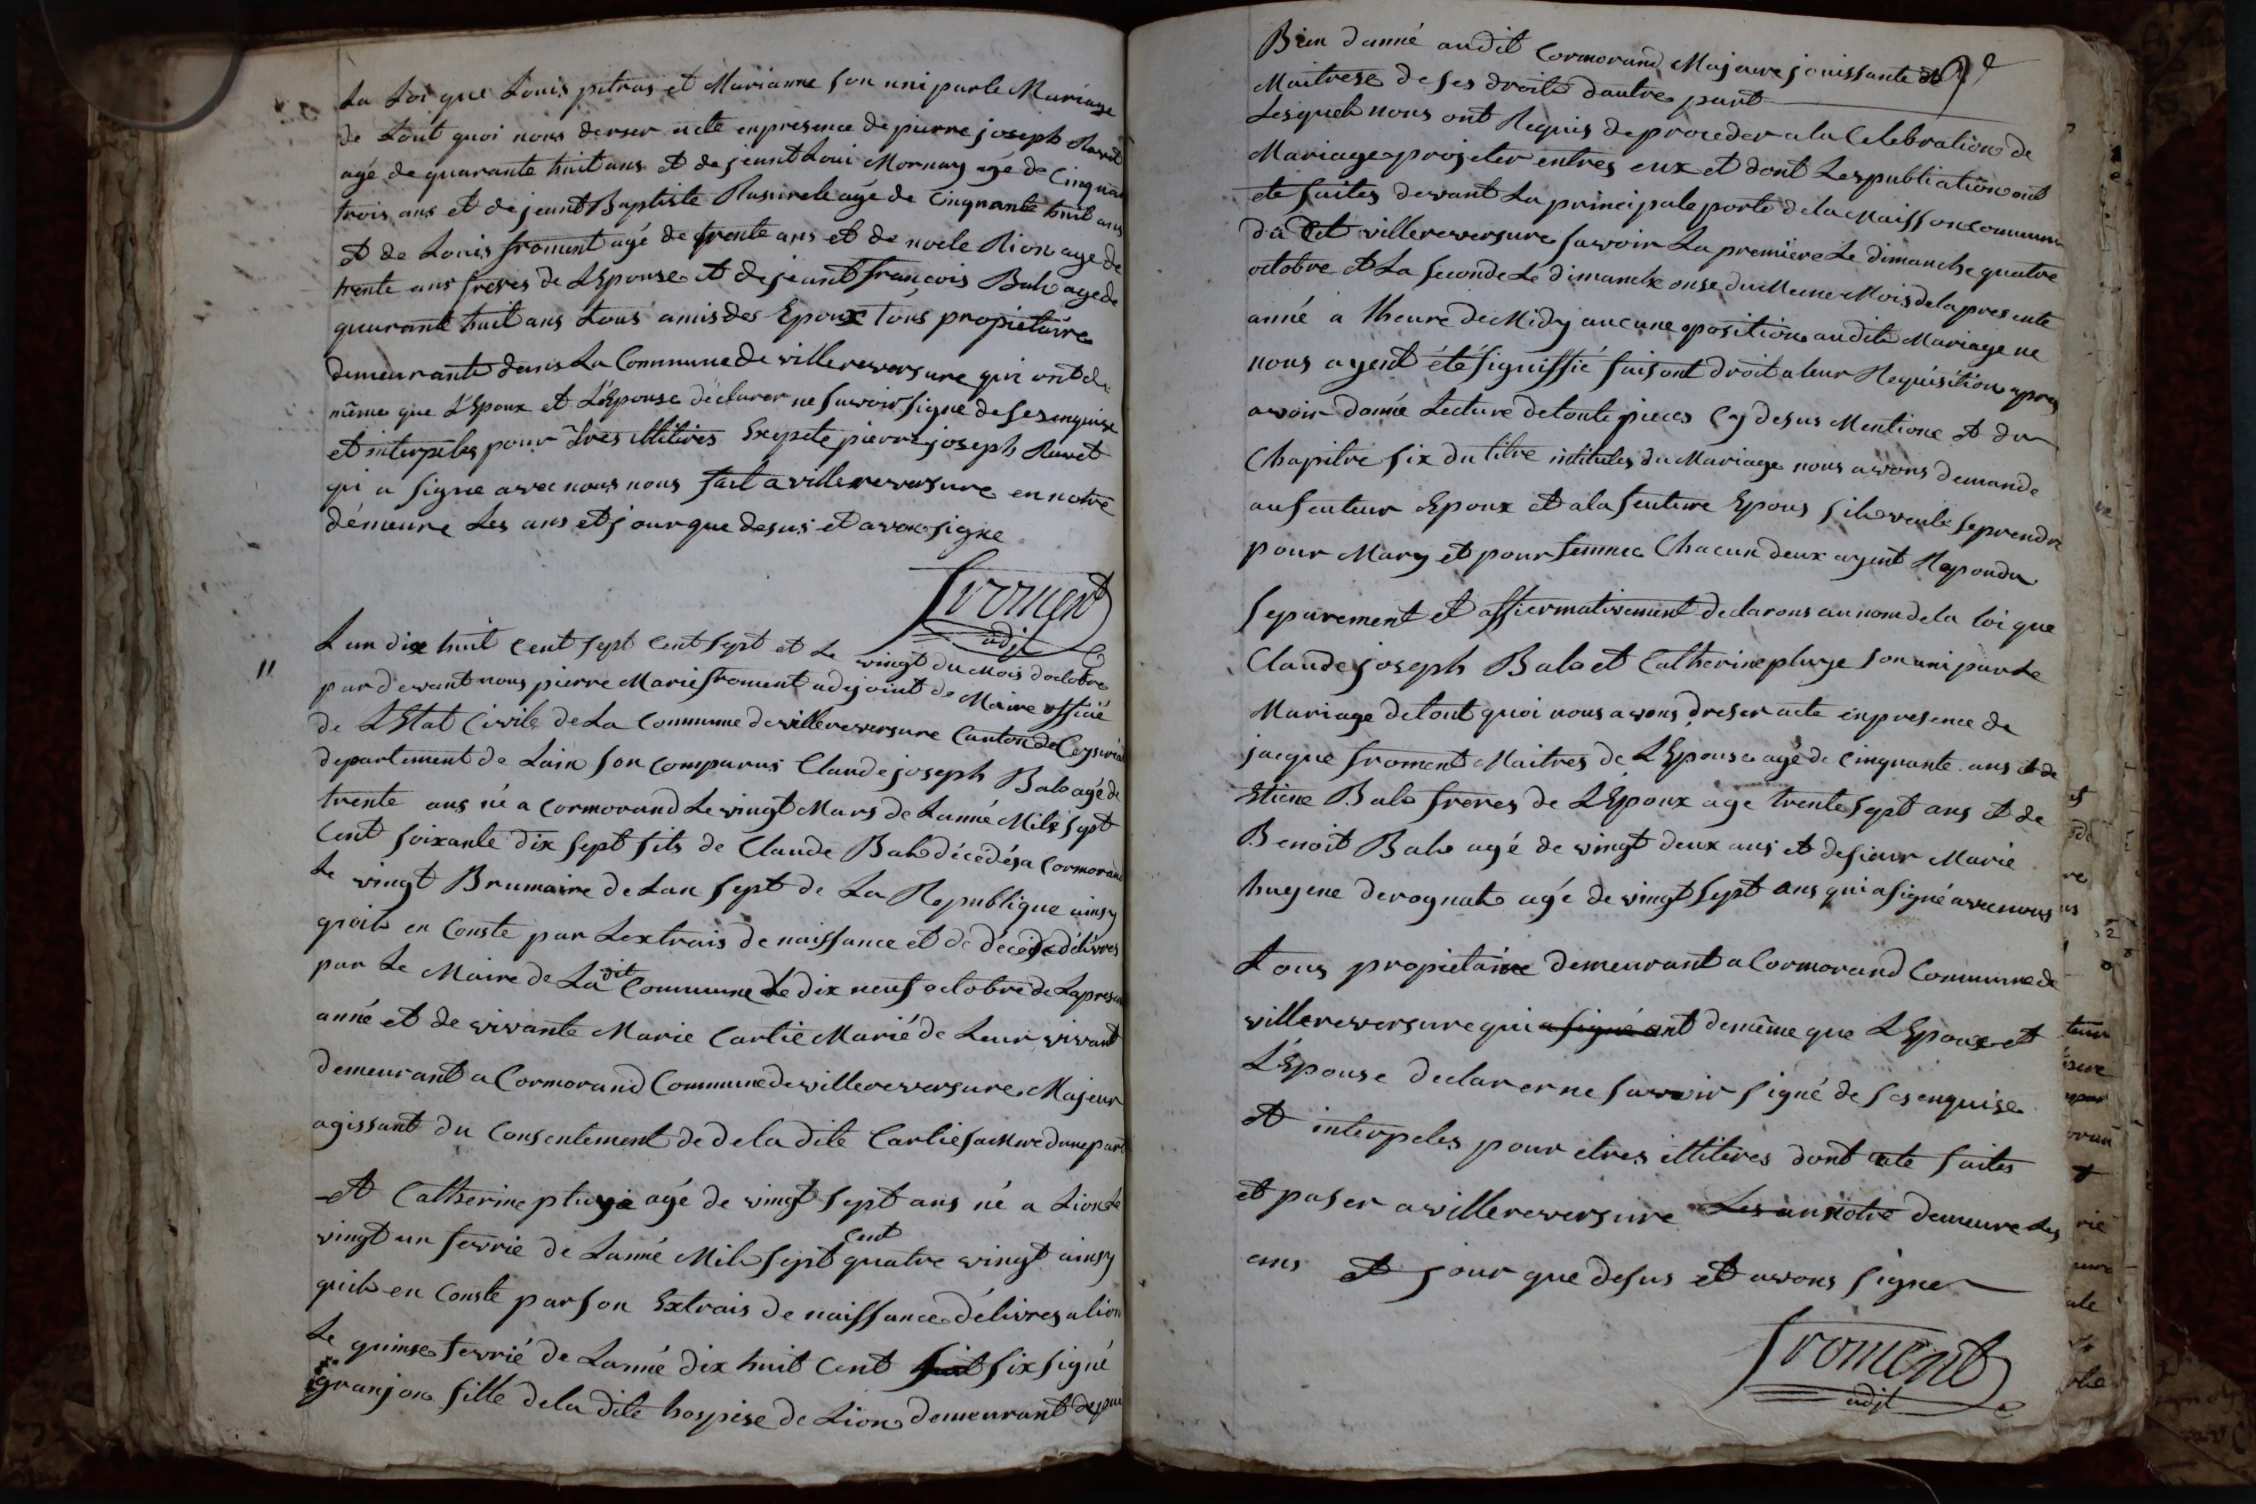 La Loi que Louis pitras et Marianne son uni par le Mariage
de tout quoi nous derser acte en presence de pierre joseph Ravet
agé de quarante huit ans et de jeant Loui Mornay agé de Cinquan
trois ans et de jeant Baptiste Rasurele agé de Cinquante huit ans
et de Louis froment agé de trente ans et de noele Rion age de
trente ans freres de L'Epouse et de jeant françois Balo age de
quarante huit ans tous amis des Epoux tous propietaire
demeurante dans La Commune de villereversure qui ont de
même que L'Epoux et L'Epouse déclarer ne savoir signe de ses enquise
et interpeles pour etres illitires Exepete pierre joseph Ravet
qi a signe avec nous nous fait a villereversure en notre
démeure Les ans et jour que desus et avons signe
froment
adjt
"
L'an dix huit cent sept cent sept et Le vingt du Mois doctobre
par devant nous pierre Marie froment adejoint de Maire officié
de L'Etat Civile de La commune de villereversure Canton de Ceyseria
departement de Lain son comparus Claude joseph Balo agé de
trente ans né a cormorand Le vingt Mars de Lanné Mile sept
Cent soixante dix sept fils de Claude Balo décédés a Cormorand
Le vingt Brumaire de Lan sept de La Republique ainsy
quoile en Conste par Lextrais de naissance et de décéde délivres
par Le Maire de La dit Commune Le dix neuf octobre de La presen
anné et de vivante Marie Cartie Marié de Leur vivant
demeurant a Cormorand Commune de villereversure Majeur
agissant du Consentement de de la dite Cartie sa Mere dune part
et Catherine pluye agé de vingt sept ans né a Lion Le
vingt un fevrié de Lanné Mile sept cent quatre vingt ainsy
quile en Conste par son Extrais de naissance délivres a lion
Le quinse fevrié de Lanné dix huit Cent six signé
granjon fille de la dite hospise de Lion demeurant depuis
Bien d'anné audit Cormorand Majeure jouissante et
Maitrese de ses droite dautre part
Lesquel nous ont Requis de proceder a la Celebration de
Mariage projeter entres eux et dont Les publiation ont
ete faites devant La principale porte de la Maisson Commune
du det villereversure savoir La première Le dimanche quatre
octobre et La seconde Le dimanche onse du Meme Mois de la presente
anné a lheure de Midy aucune oposition audite Mariage ne
nous ayent été signiffié faisont droit a leur Requisition apres
avoir donné Lecture de toute pieces Cy desus Mentione et du
Chapitre six du titre intitules du Mariage nous avons demande
au feuteur Epoux et a la feuteure Epous sile veule se prendre
pour Mary et pour femme Chacun deux ayent Repondu
separement et affiermativement declarons au nom de la loi que
Claude joseph Balo et Catherine pluye son uni par Le
Mariage de tout quoi nous avons dreser acte en presence de
jacque froment Maitres de L'Epouse agé de Cinquante ans et de
Etiene Balo freres de L'Epoux age trente sept ans et de
Benoit Balo agé de vingt deux ans et de sieur Marie
hugene derognat agé de vingt sept ans qui a signé avec nous
tous propietaire demeurant a Cormorand Commune de
villereversure qui a signé ont de même que L'Epoux et
L'Epouse declarer ne savoir signé de ses enquise
et interpeles pour etres illitires dont acte faites
et paser a villereversure Les an notre demeure Les
ans et jour que desus et avons signe
froment
adjt